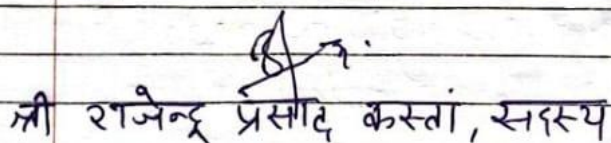 श्री राजेन्द्र प्रसाद कस्तां, सदस्य